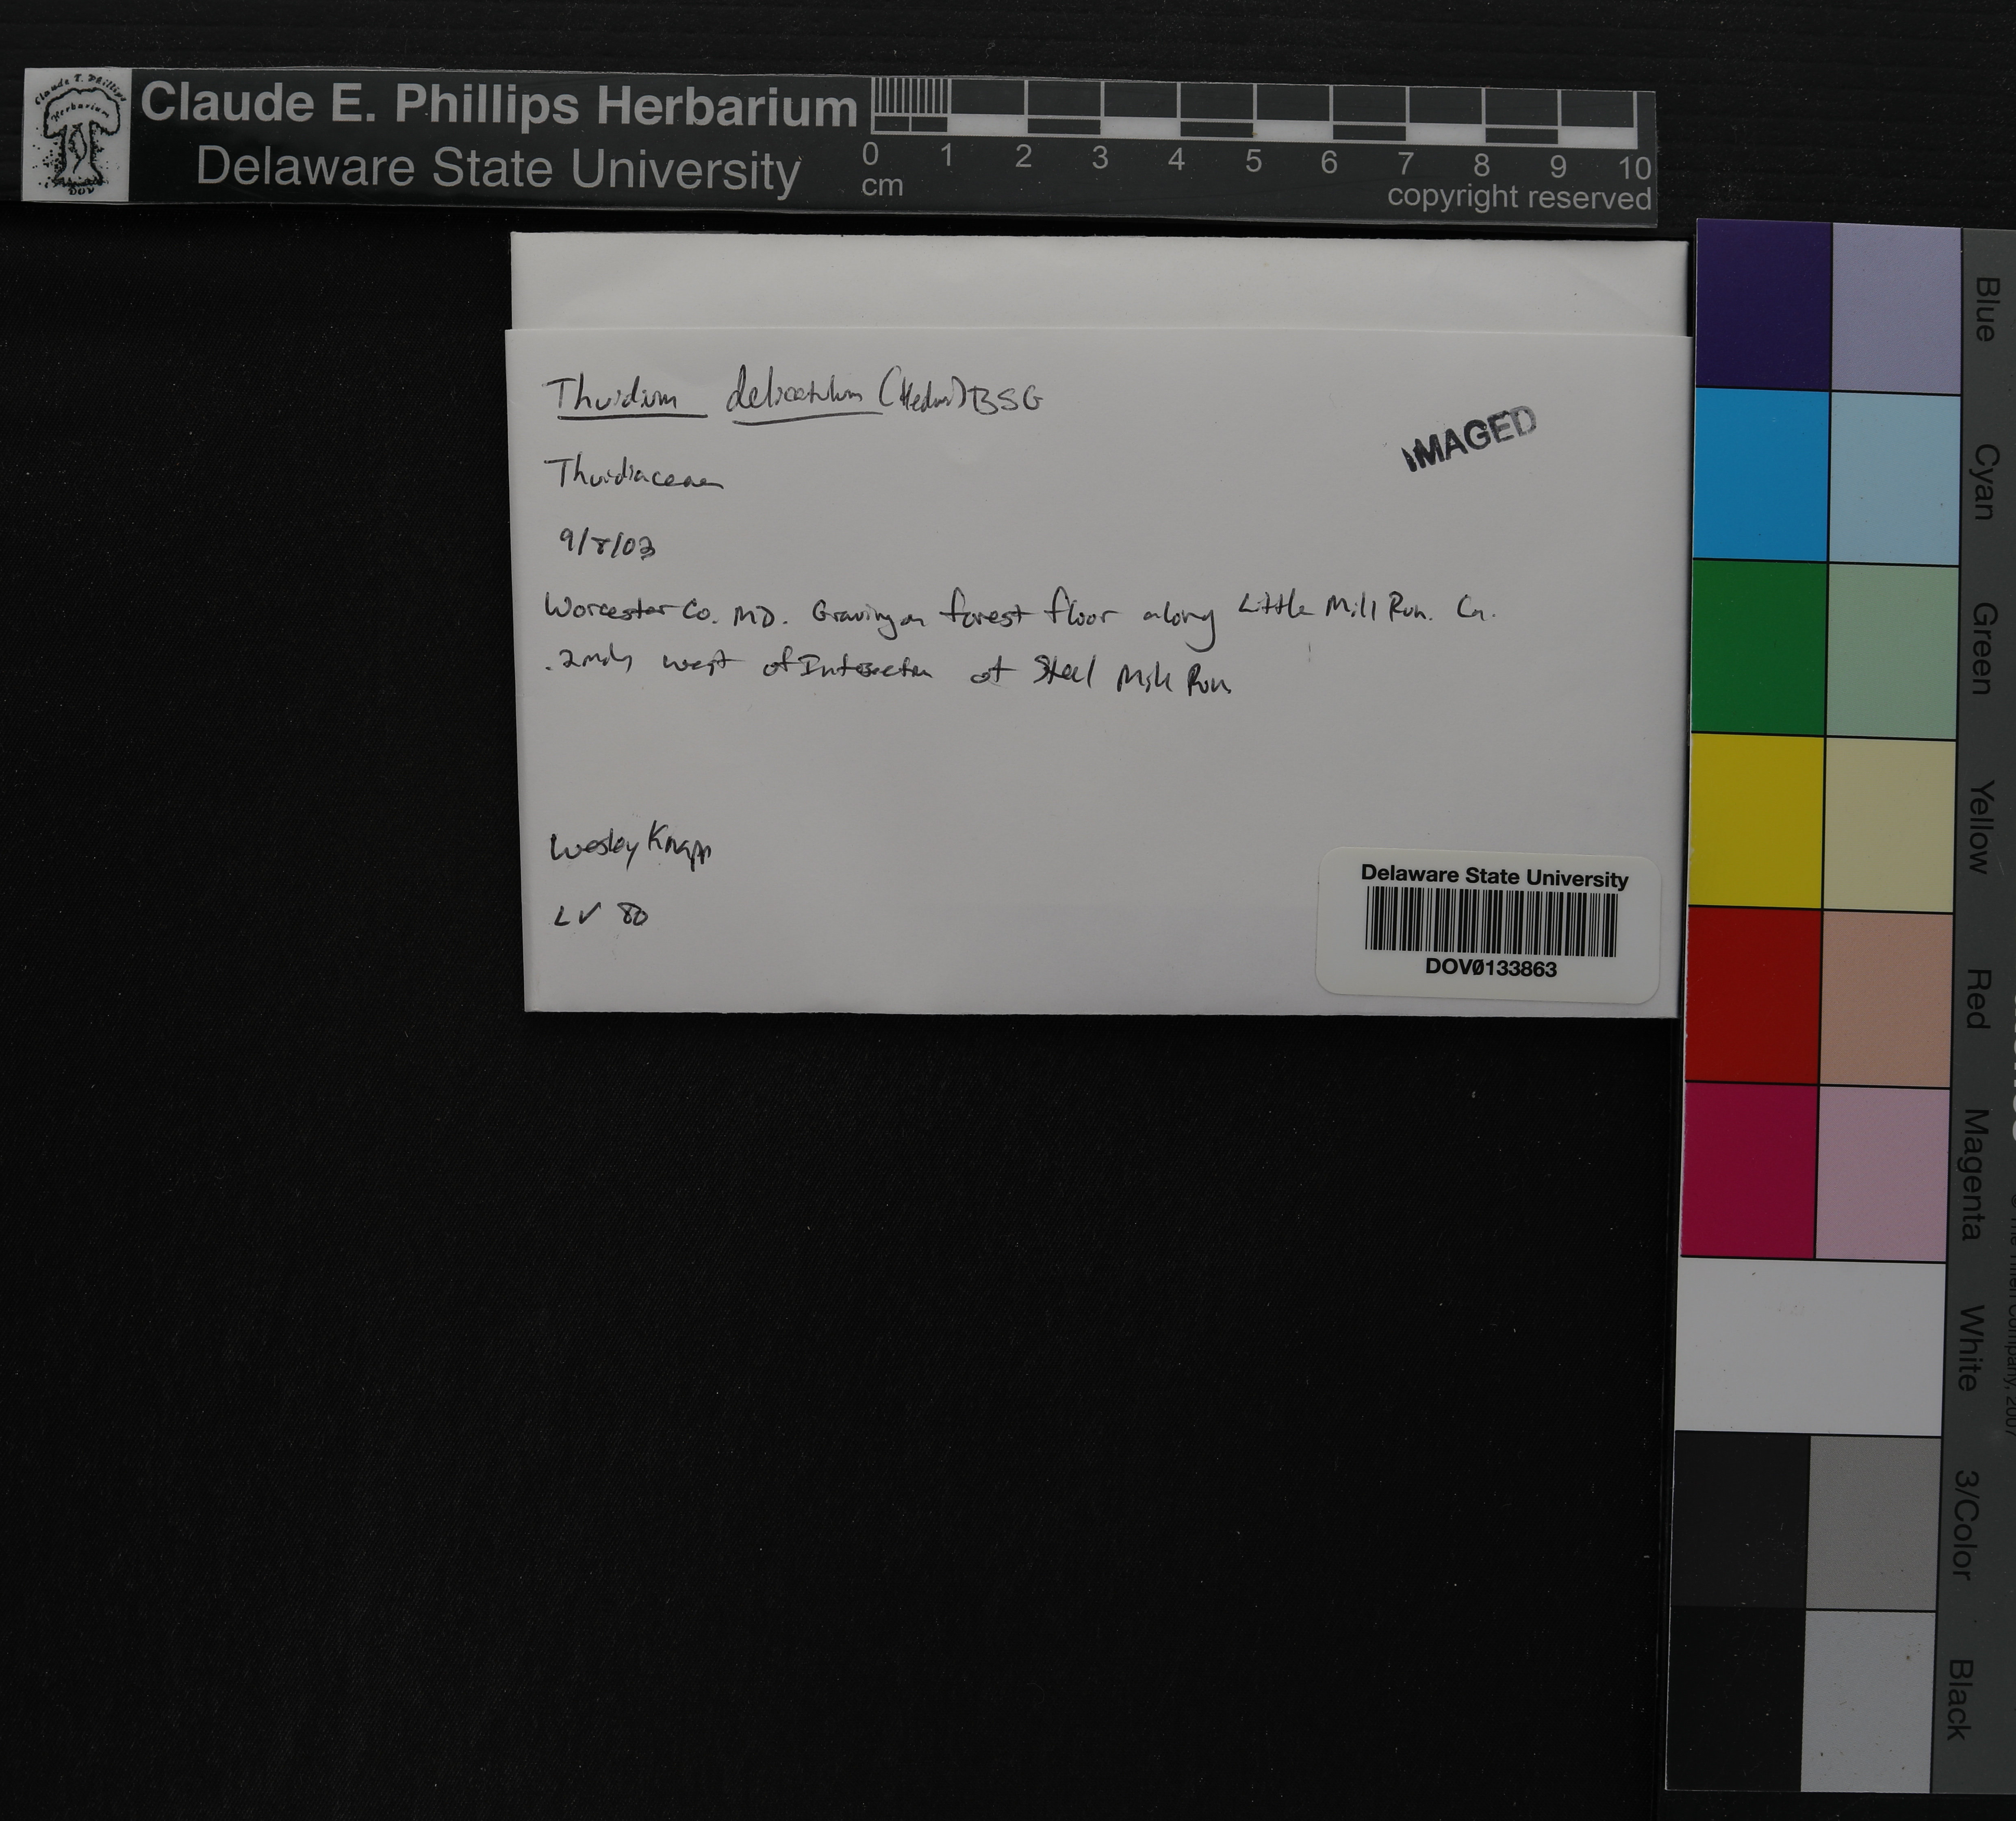 Claude E. Phillips Herbarium
Delaware State University
0 1 2 3 4 5 6 7 8 9 10
cm
copyright reserved
Thuidium delicatulum (Hedw) BSG
IMAGED
Thuidiaceae
9/8/03
Worcester Co. MD. Growing on forest floor along Little Mill Run. Ca.
west of Intersection of Steel Mill Run
Wesley Knapp
LV 80
Delaware State University
DOV0133863
Blue
Cyan
Green
Yellow
Red
Magenta
White
3/Color
Black